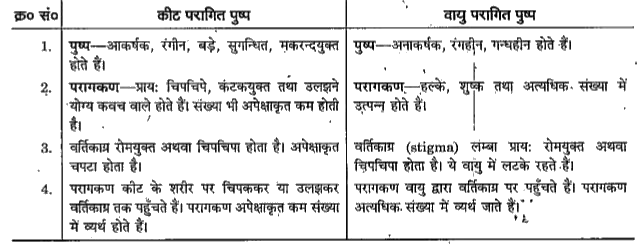 क्र० सं० कीट परागित पुष्प वायु परागित पुष्प
1. पुष्प—आकर्षक, रंगीन, बड़े, सुगन्धित, मकरन्दयुक्त
होते हैं।
पुष्प—अनाकर्षक, रंगहीन, गन्धहीन होते हैं।
2. परागकण—प्रायः चिपचिपे, कंटकयुक्त तथा उलझने
योग्य कवच वाले होते हैं। संख्या भी अपेक्षाकृत कम होती
है।
परागकण—हल्के, शुष्क तथा अत्यधिक संख्या में
उत्पन्न होते हैं।
3. वर्तिकाग्र रोमयुक्त अथवा चिपचिपा होता है। अपेक्षाकृत
चपटा होता है।
वर्तिकाग्र (stigma) लम्बा प्रायः रोमयुक्त अथवा
चिपचिपा होता है। ये वायु में लटके रहते हैं।
4. परागकण कीट के शरीर पर चिपककर या उलझकर
वर्तिकाग्र तक पहुँचते हैं। परागकण अपेक्षाकृत कम संख्या
में व्यर्थ होते हैं।
परागकण वायु द्वारा वर्तिकाग्र पर पहुँचते हैं। परागकण
अत्यधिक संख्या में व्यर्थ जाते हैं।